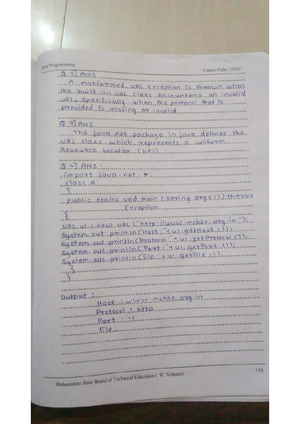 Java Programming Course Code: 314317
Q.1] ANS
A malformed URL Exception is thrown when
the built-in URL class encounters an invalid
URL, specifically when the protocol that is
provided is missing or invalid
Q.3] ANS
The java.net package in java defines the
URL class which represents a uniform
Resource Locator (URL)
Q.4] ANS:
import java.net.*;
class A
{
public static void main (String args[]) throws
Exception
{
URL u = new URL ("http://www.msbte.org.in");
System.out.println ("Host : "+u.getHost());
System.out.println ("Protocol : "+u.getProtocol());
System.out.println ("Port : "+u.getPort());
System.out.println ("File : "+u.getFile());
}
}
Output :
Host : www.msbte.org.in
Protocol : http
Port : -1
File :
Maharashtra State Board of Technical Education ('K' Scheme) 111